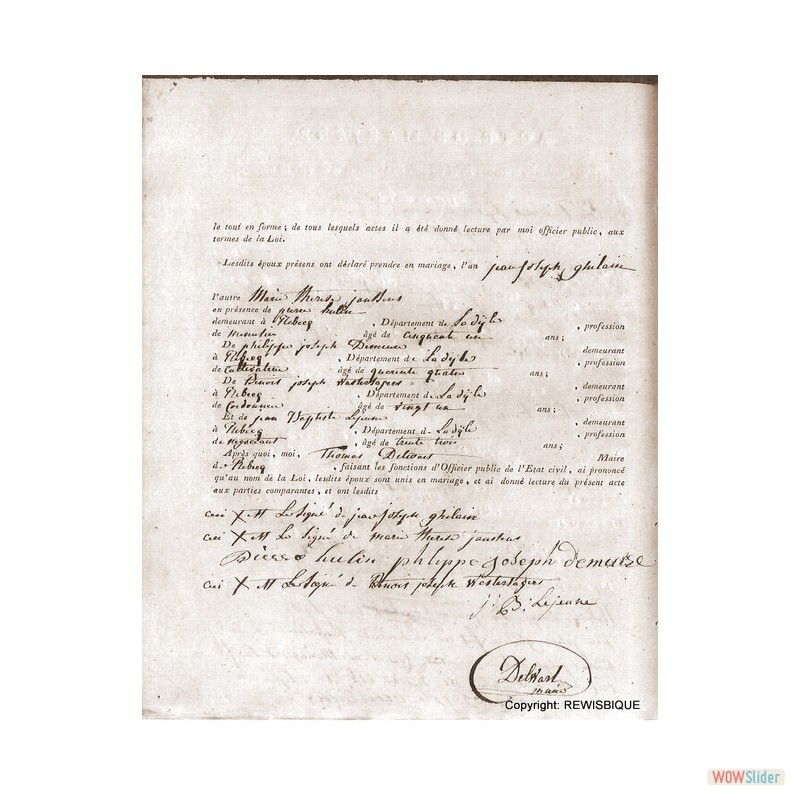 le tout en forme; de tous lesquels actes il a été donné lecture par moi officier public, aux
termes de la Loi.
Lesdits époux présens ont déclaré prendre en mariage, l'un jean joseph ghilain
l'autre Marie therese janssens
en présence de pierre hulin
demeurant à Rebecq , Département de La dÿle , profession
de menutier âgé de cinquante un ans;
De philippe joseph Demeure demeurant
à Rebecq , Département de La dÿle , profession
de Cultivateur âgé de quarente quatre ans;
De Benoit joseph Wastersagers , demeurant
à Rebecq , Département de La dÿle , profession
de Cordonnier âgé de vingt un ans;
Et de jean Baptiste Lejeune , demeurant
à Rebecq , Département de La dÿle , profession
de négociant âgé de trente trois ans;
Après quoi, moi, Thomas Delwart Maire
de Rebecq , faisant les fonctions d'Officier public de l'Etat civil, ai prononcé
qu'au nom de la Loi, lesdits époux sont unis en mariage, et ai donné lecture du présent acte
aux parties comparantes, et ont lesdits
ceci X est Le Signé de jean joseph ghilain
ceci X est Le Signé de marie therese janssens
Pierre hulin phlippe joseph demeure
ceci X est Le Signé de Benoit joseph Wastersagers
j: B: Lejeune
Delwart
maire
Copyright: REWISBIQUE
WOWSlider